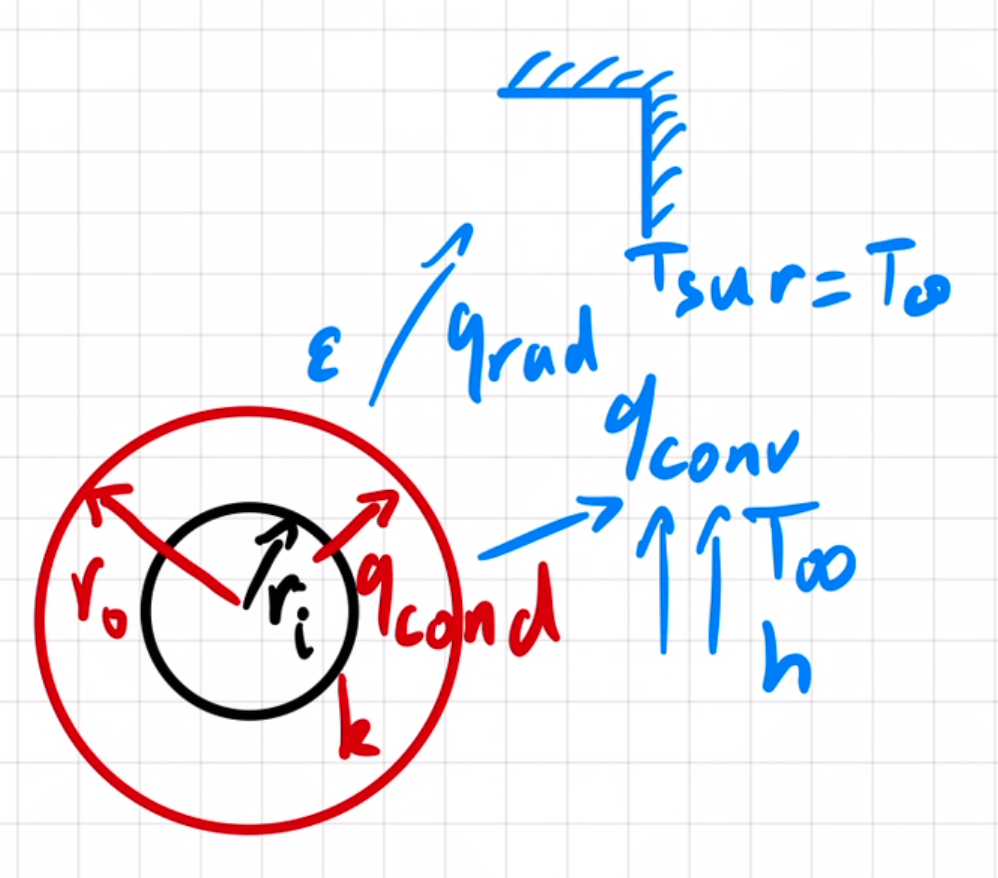 T_sur = T_∞
ε q_rad
q_conv
T_∞
r_o r_i q_cond
h
k